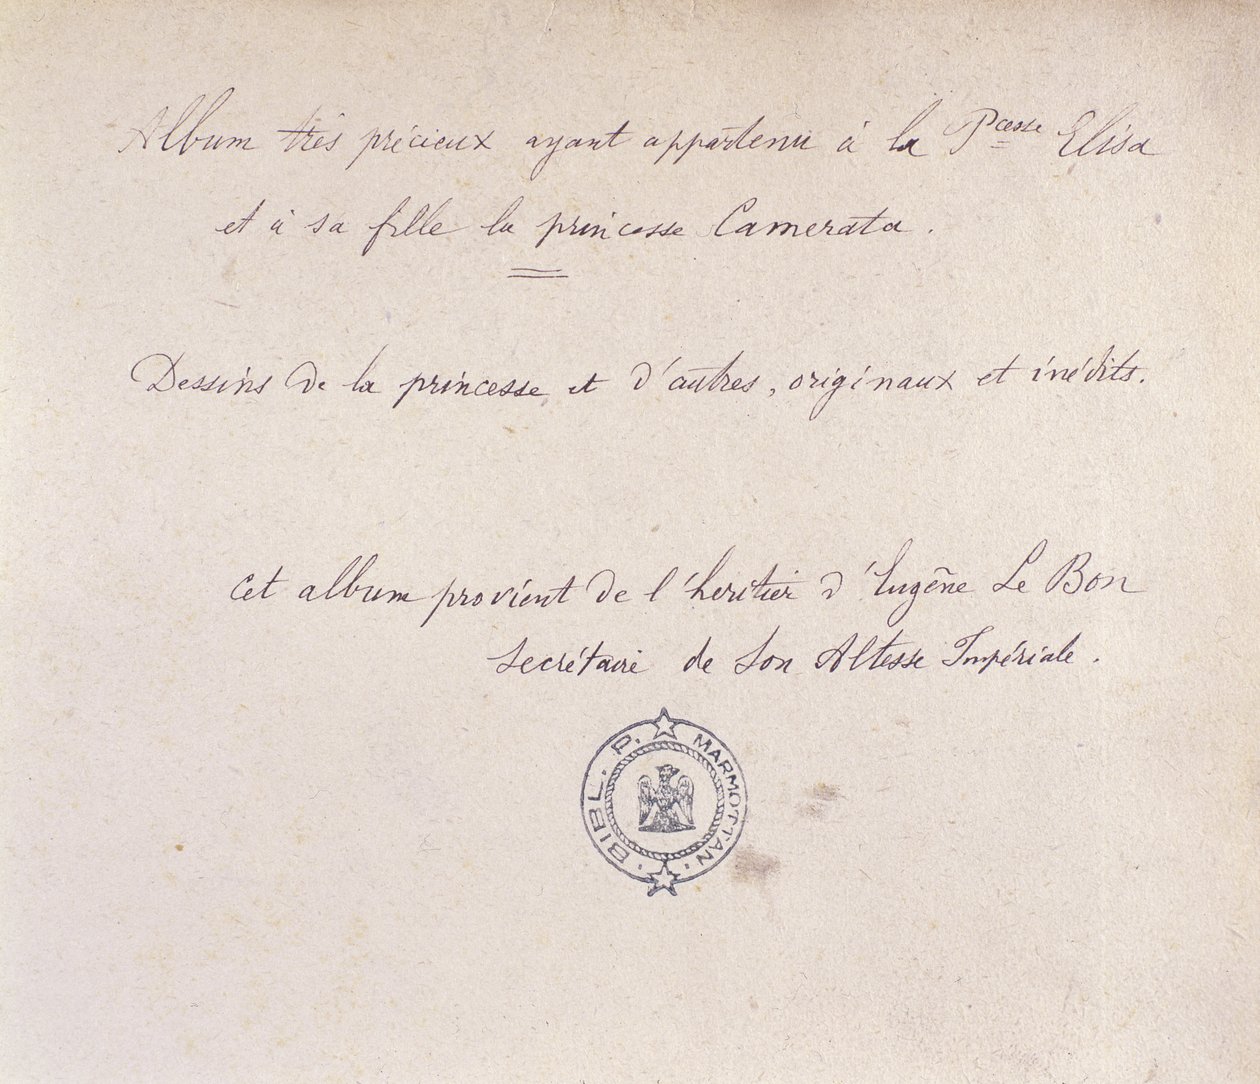 Album très précieux ayant appartenu à la Pcesse Elisa
et à sa fille la princesse Camerata.
Dessins de la princesse et d'autres, originaux et inédits.
Cet album provient de l'héritier d'Eugène Le Bon
Secrétaire de Son Altesse Impériale.
BIBL. P. MARMOTTAN.